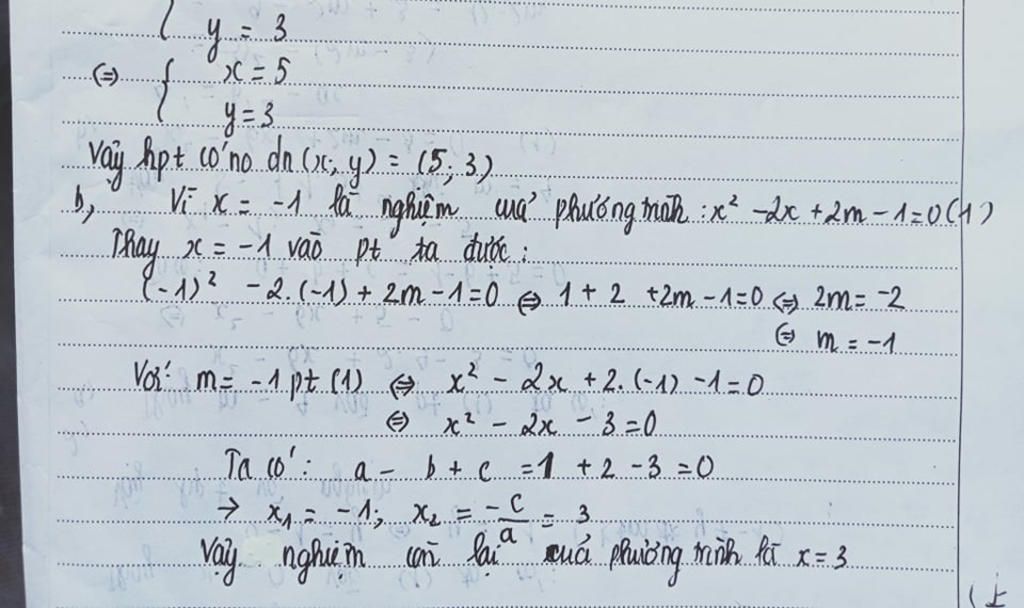 { y = 3
⇔ { x = 5
y = 3
Vậy hpt có no dn (x; y) = (5; 3)
b, Vì x = -1 là nghiệm của phương trình : x² - 2x + 2m - 1 = 0 (1)
Thay x = -1 vào pt ta được :
(-1)² - 2.(-1) + 2m - 1 = 0 ⇔ 1 + 2 + 2m - 1 = 0 ⇔ 2m = -2
⇔ m = -1
Với m = -1 pt (1) ⇔ x² - 2x + 2.(-1) - 1 = 0
⇔ x² - 2x - 3 = 0
Ta có : a - b + c = 1 + 2 - 3 = 0
→ x₁ = -1; x₂ = -c/a = 3
Vậy nghiệm còn lại của phương trình là x = 3